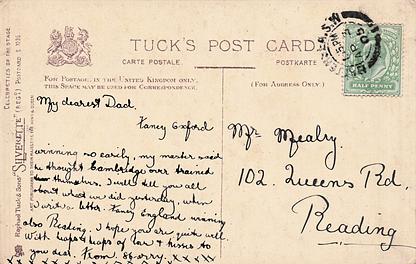 TUCK'S POST CARD
CARTE POSTALE. POSTKARTE
FOR POSTAGE, IN THE UNITED KINGDOM ONLY,
THIS SPACE MAY BE USED FOR CORRESPONDENCE.
(FOR ADDRESS ONLY)
HALF PENNY
CELEBRITIES OF THE STAGE
Raphael Tuck & Sons' "SILVERETTE" (REGD) POSTCARD
My dearest Dad,
Fancy Oxford
winning so easily, my master said
he thought Cambridge over trained
themselves. I will tell you all
about what we did yesterday, when
I write a letter. Fancy England winning
also Reading. I hope you are quite well.
With heaps & heaps of love & kisses to
you dear. From
Mr. Mealry.
102. Queens Rd,
Reading